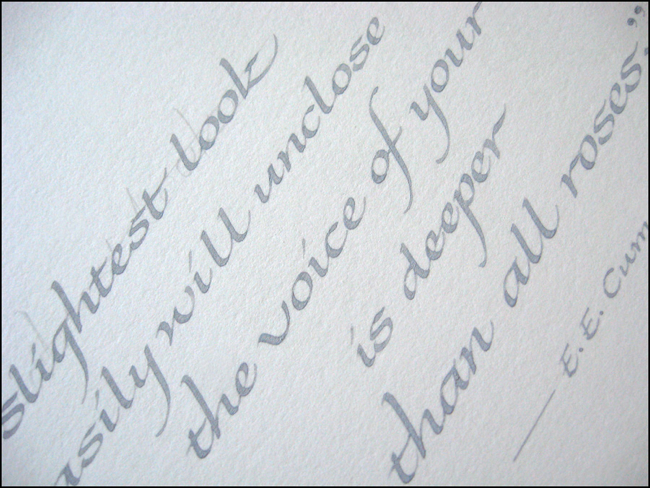 slightest look
asily will unclose
the voice of your
is deeper
than all roses."
— E.E. Cum